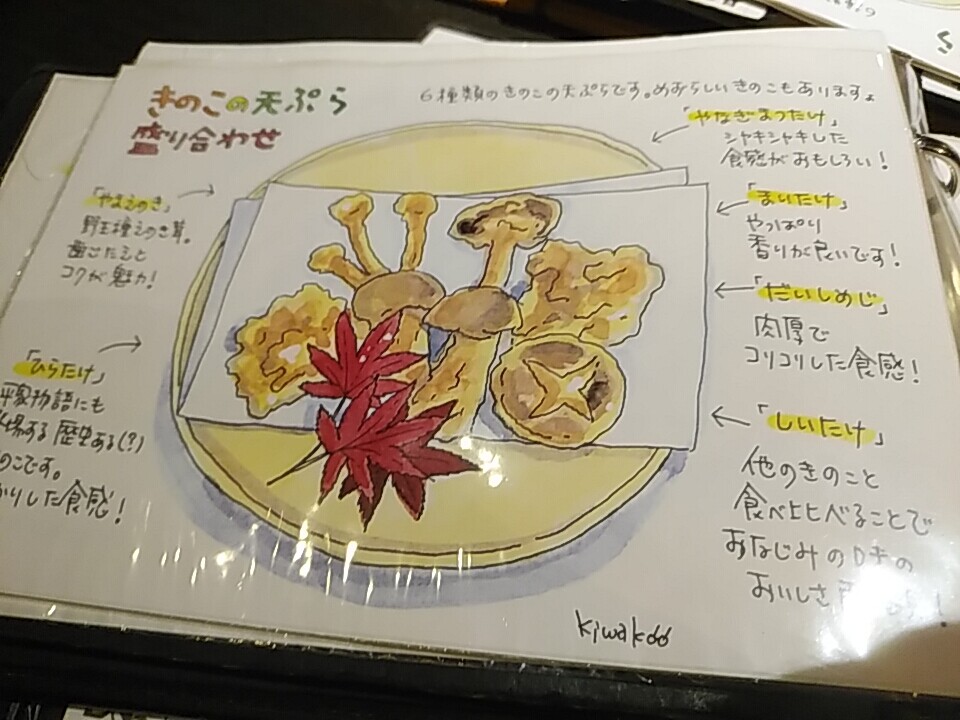 きのこの天ぷら
盛り合わせ
6種類のきのこの天ぷらです。めずらしいきのこもありますよ
「やなぎまつたけ」
シャキシャキした
食感がおもしろい!
「まいたけ」
やっぱり
香りが良いです!
「だいしめじ」
肉厚で
コリコリした食感!
「しいたけ」
他のきのこと
食べ比べることで
おなじみの味の
おいしさ
「やまえのき」
野生種えのき茸。
歯ごたえと
コクが魅力!
「ひらたけ」
平家物語にも
場する歴史ある(?)
のこです。
りした食感!
kiwakoo